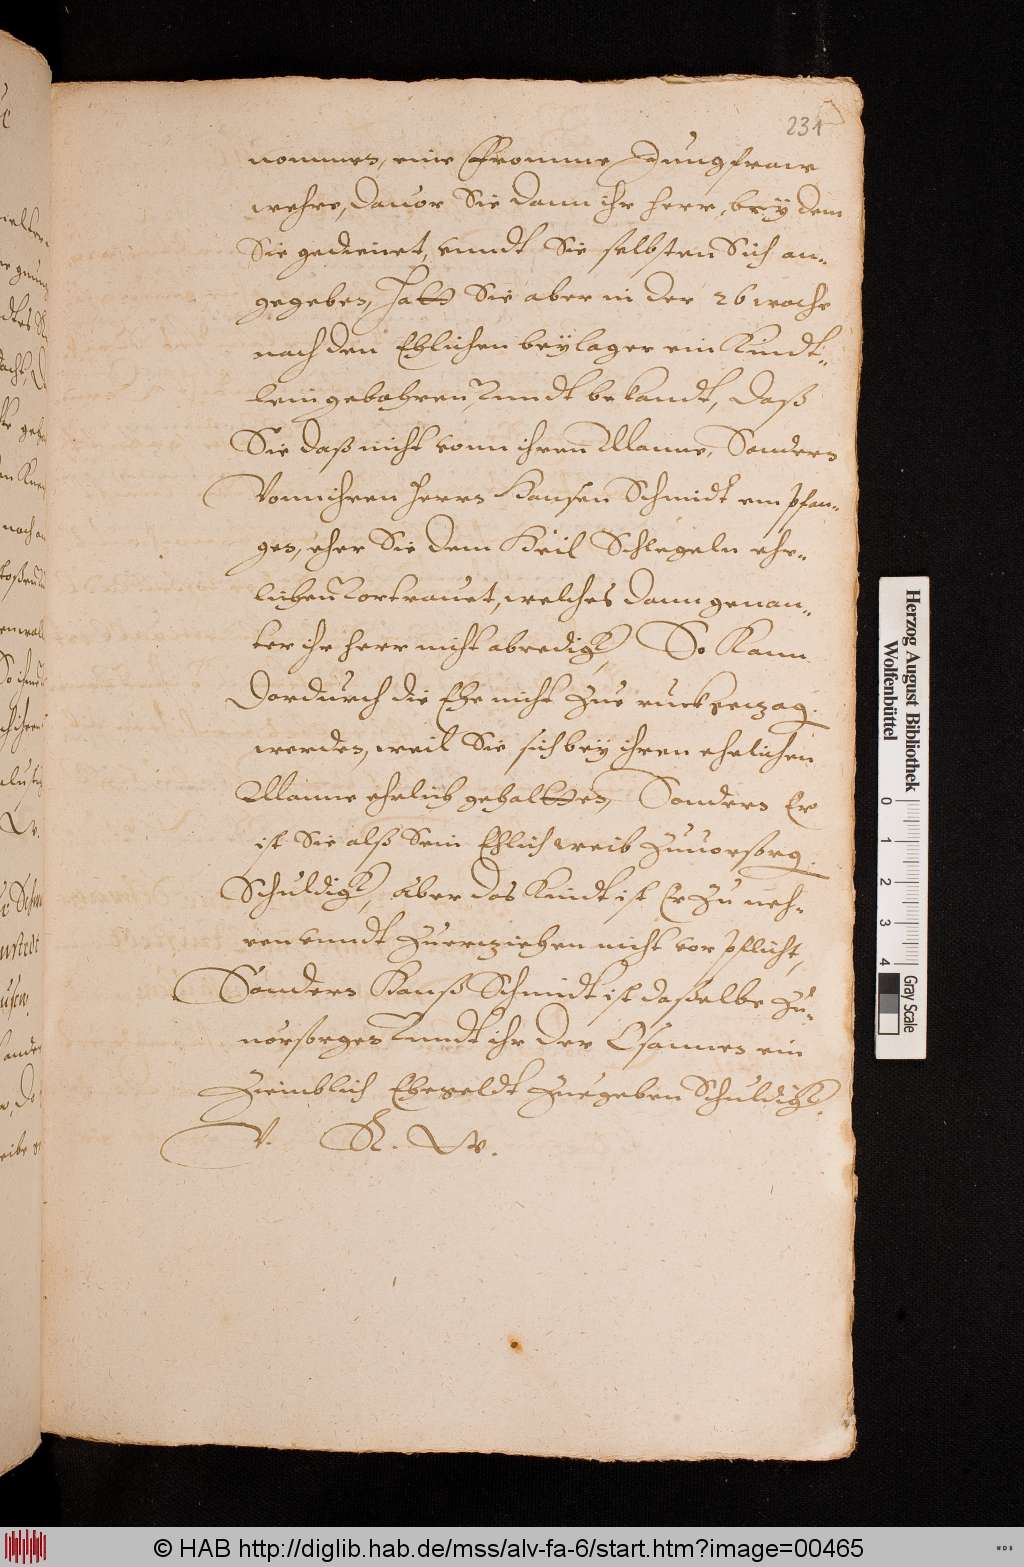 231
nommen, eine Fromme Jungfraw
wehre, dauor Sie dann ihr herr, bey dem
Sie gedienet, vnndt Sie selbsten Sich an-
gegeben, hatt Sie aber in der 26 woche
nach den Ehlichen beylager ein Kindt-
lein gebohren, vnndt bekandt, daß
Sie daß nicht vonn ihren Manne, Sondern
Vonn ihren herrn Hansen Schmidt empfan-
gen, eher Sie dem Keil Schlegeln ehe-
lichen vortrauet, welches dann genan-
ter ihr herr nicht abredigk, So Kann
Dordurch die Ehe nicht Zue ruck
werden, weil Sie sich bey ihren ehelichen
Manne ehrlich gehaltten, Sondern Er
ist Sie alß Sein Ehlich weib Zuuorsorg.
Schuldigk, aber das Kindt ist Er Zu neh-
ren vnndt Zuerziehen nicht vorpflicht,
Sondern Hanß Schmidt ist daßelbe Zu-
uorsorgen vnndt ihr der ein
Ziemblich Ehegeldt Zuegeben Schuldigk.
V. R. W.
Herzog August Bibliothek
Wolfenbüttel
0 1 2 3 4
Gray Scale
© HAB http://diglib.hab.de/mss/alv-fa-6/start.htm?image=00465
WDB